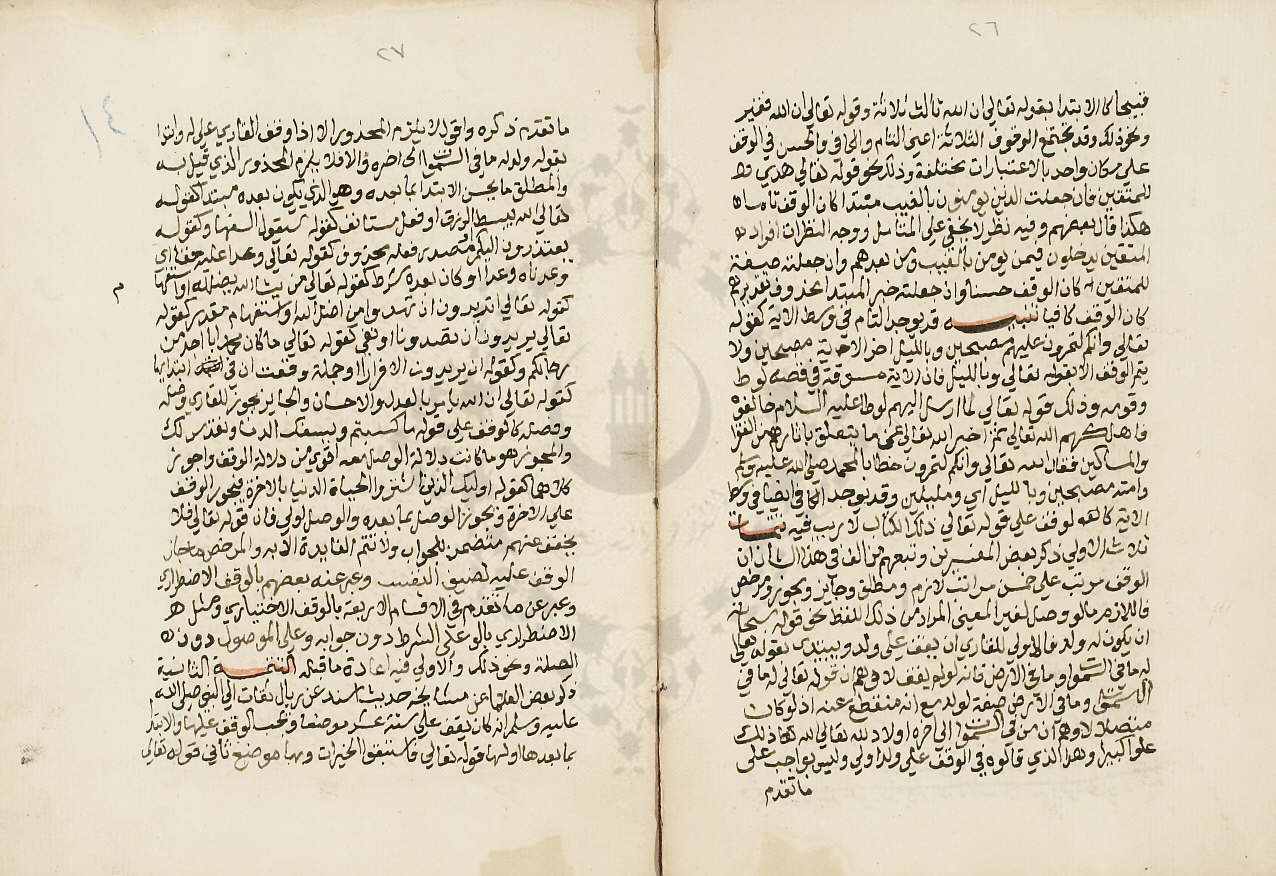 ٢٦
فيها كالابتدا بقوله تعالى ان الله ثالث ثلاثة وقوله تعالى ان الله فقير
ونحو ذلك وقد تجتمع الوقوف الثلاثة اعني التام والكافي والحسن في الوقف
على مكان واحد بالاعتبارات مختلفة وذلك نحو قوله تعالى هدي
للمتقين فان جعلت الذين يومنون بالغيب مبتدا كان الوقف تاما
هكذا قال بعضهم وفيه نظر لا يخفي على المتامل ووجه النظرات افراد
المتقين يدخلون فيمن يومن بالغيب ومن بعدهم وان جعلته صيفة
للمتقين كان الوقف حسنا وان جعلته خبر المبتدا محذوف تقديرهم
كان الوقف كافيا تنبيه قد يوجد التام في وسط الاية كقوله
تعالي وانكم لتمرون عليهم مصبحين وبالليل اخر الاية مصبحين ولا
يتم الوقف الا بقوله تعالي وبالليل فان الاية مسوقة في قصة لوط
وقومه وذلك قوله تعالي لما ارسل اليهم لوطا عليه السلام خالفوه
فاهلكهم الله تعالي ثم اخبر الله تعالي عن ما يتعلق باثارهم من القرا
والمساكين فقال الله تعالي وانكم لتمرون خطابا لمحمد صلى الله عليه وسلم
وامته مصبحين وبالليل اي ومليلين وقد يوجد الكافي ايضا في وسط
الاية كالوقف على قوله تعالي ذلك الكتاب لا ريب فيه تتمات
ثلاث الاولي ذكر بعض المفسرين وتبعهم من الف في هذا الشان ان
الوقف مرتب على خمس مراتب لازم ومطلق وجايز ومجوز ومرخص
فاللازم ما لو وصل لغير المعنى المراد من ذلك اللفظ نحو قوله سبحانه
ان يكون له ولد فالاولي للقاري ان يقف علي ولد ويبتدي بقوله تعالي
له ما في السموات وما في الارض فانه لو لم يقف لاوهم ان قوله تعالي له ما في
السموات وما في الارض صيفة لولد مع انه منقطع عنه اذ لو كان
متصلا لاوهم ان من في السموات الى اخره اولاد لله تعالي الله عن ذلك
علوا كبيرا وهذا الذي قالوه في الوقف على ولد اولي وليس بواجب على
ما تقدم
٢٧
١٤
ما تقدم ذكره واقول لا يلزم المحذور الا اذا وقف القاري على له وابتدا
بقوله ولد له ما في السموات الى اخره والا فلا يلزم المحذور الذي قيل به
والمطلق ما يحسن الابتدا بما بعده وهو الذي يكون بعده مبتدا كقوله
تعالي الله يبسط الرزق او فعل مستانف كقوله سيقول السفها وكقوله
يعتذرون اليكم او مصدر فعله محذوف كقوله تعالي وعدا عليه حقا اي
وعدناه وعدا او كان بعده شرط كقوله تعالي من يشا الله يضلله او استفهام
م
كقوله تعالي اتريدون ان تهدوا من اضل الله او استفهام مقدر كقوله
تعالي يريدون ان تصدونا او نفي كقوله تعالي ما كان محمد ابا احد من
رجالكم وكقوله ان يريدون الا فرارا او جملة وقعت ان في ابتدايها
كقوله تعالي ان الله يامر بالعدل والاحسان والجايز يجوز للقاري وصله
وفصله كالوقف على قوله ما كسبتم ويسفك الدما ونقدس لك
والمجوز هو ما كانت دلالة الوصل معه اقوي من دلالة الوقف واجوز
كلاهما كقوله اوليك الذين اشتروا الحياة الدنيا بالاخرة فيجوز الوقف
علي الاخرة ويجوز الوصل بما بعده والوصل اولي فان قوله تعالي فلا
يخفف عنهم متضمن للجواب ولا تتم الفايدة الا به والمرخص ما جاز
الوقف عليه لضيق النفس وعبر عنه بعضهم بالوقف الاضطراري
وعبر عن ما تقدم في الاقسام الاربعة بالوقف الاختياري ومثل
الاضطراري بالوقف علي الشرط دون جوابه وعلي الموصول دون
الصلة ونحو ذلك والاولي فيه اعادة ما قبله التتمة الثانية
ذكر بعض العلما عن مشايخه حديث اسند عن رجال ثقات الى النبي صلى الله
عليه وسلم انه كان يقف على ستة عشر موضعا ويحب الوقف عليها والابتدا
بما بعدها اولها قوله تعالي فاستبقوا الخيرات ومنها موضع ثاني قوله تعالى